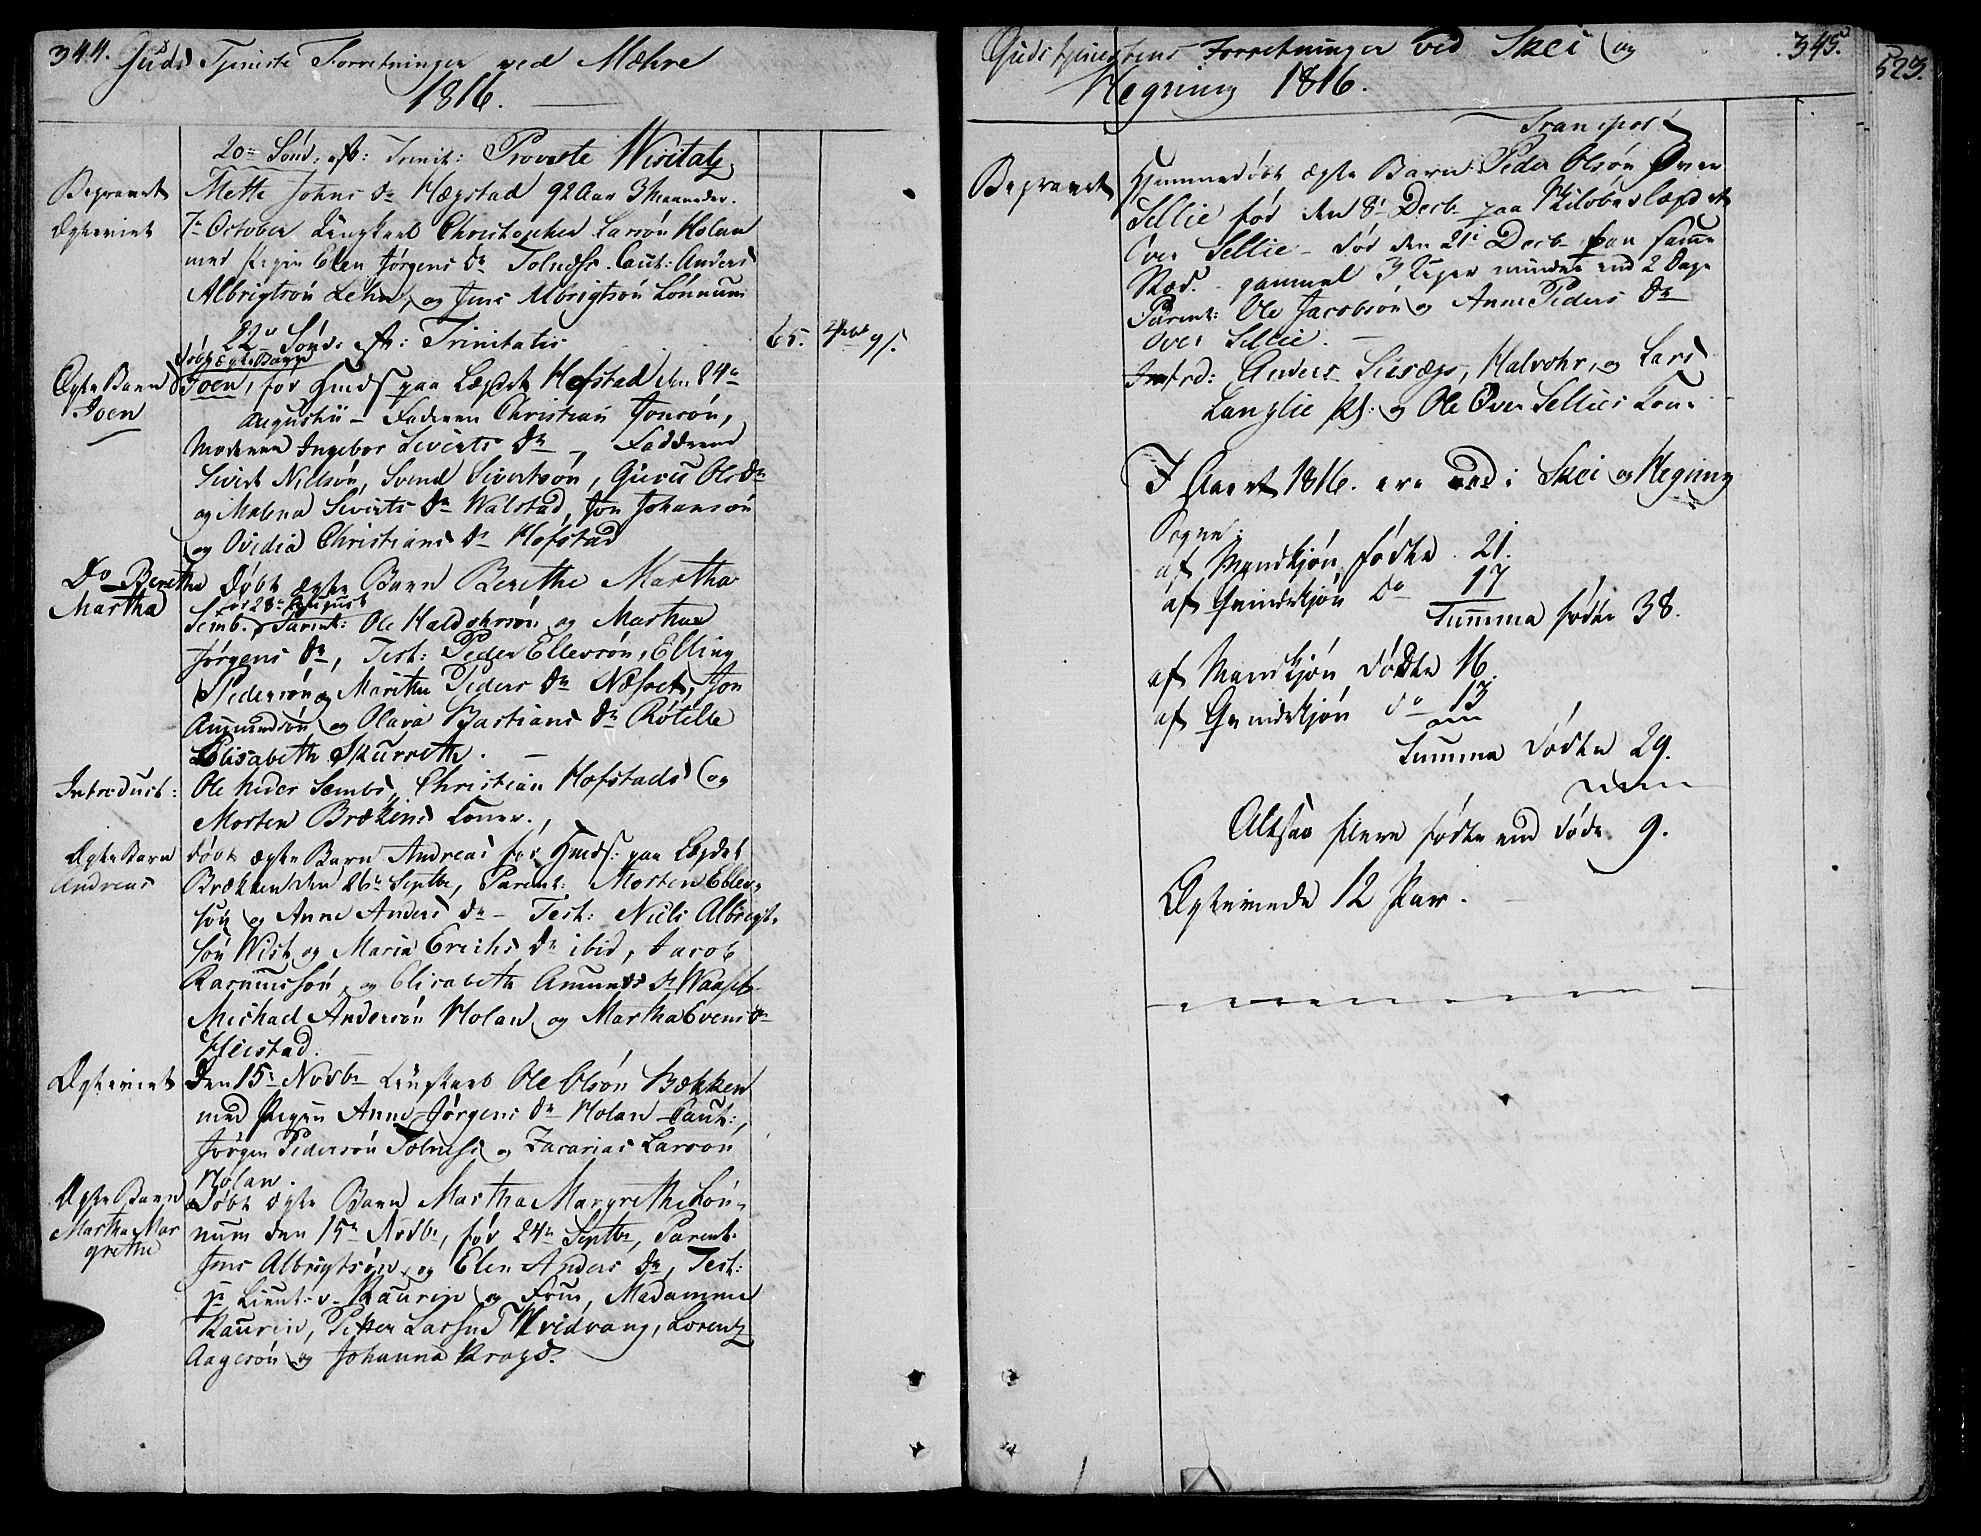 344. Guds Tjeniste Forretninger ved Mæhre
1816.
20de Sönd: eft: Trinit: Provste Visitatz
Begravet Mette Johns Dr Hægstad 92 Aar 3 Maaneder.
Ægteviet 7de October Ungkarl Christopher Larsön Holan
med Pigen Elen Jörgens Dr Tolnæss. Caut: Anders
Albrigtsön Lehn, og Jens Albrigtsön Lönnum
22de Sönd: eft: Trinitatis 65.
Döbt ægte Barn
Ægte Barn Joen, för hmds paa Læydet Hofstad den 24de
Joen Augustii – Faderen Christian Jonsön,
Moderen Ingebor Siverts Dr –, Faddrene
Sivert Nilsön, Svend Sivertsön, Guru Ols Dr
og Malena Siverts Dr Walstad, Jon Johansön
og Ovidia Christians Dr Hofstad
Do Berethe Döbt ægte Barn Berethe Martha
Martha för 28de August
Semb. Parent: Ole Haldohrsön og Martha
Jörgens Dr, Test: Peder Ellevsön, Elling
Pedersön og Marithe Peders Dr Næsset, Jon
Amundsön og Olava Bastians Dr
Elisabeth Skurreth. –
Introduct: Ole Neder Sembs, Christian Hofstads og
Morten Brækkens Koner.
Ægte Barn Döbt ægte Barn Andreas för hmds: paa Læydet
Andreas Brækken den 26de Septbr, Parent: Morten Ellev-
sön og Anne Anders Dr – Test: Niels Albrigt-
sön Wist og Maria Erichs Dr ibid, Jacob
Rasmussön, og Elisabeth Amunds Dr
Michael Andersön Holan og Martha Evens Dr
Heistad.
Ægteviet Den 15de Novbr Ungkarl Ole Olsön Bækken
med Pigen Anne Jörgens Dr Holan Caut:
Jörgen Pedersön Tolness og Zacarias Larsön
Holan.
Ægte Barn Döbt ægte Barn Martha Margrethe Lön-
Martha Mar num den 15de Novbr, för 24de Septbr, Parent:
grethe Jens Albrigtsön og Elen Anders Dr, Test:
Lieut: v. Kaurin og Frue, Madamme
Kaurin, Petter Hvidvang, Lorentz
Aagesön og Johanna Krogs.
Guds tjenestens Forretninger ved Skei og 345.
Hegning 1816.
523.
Transport
Begravet Hjemmedöbt ægte Barn Peder Olsön Över
Sellie för den 8de Decb. paa
Över Sellie – död den 21de Decb. paa samme
Stæd. – gammel 3 Uger mindre end 2 Dage
Parent: Ole Jacobsön og Anne Peders Dr
Över Sellie. –
Introd: Anders, Halvohr, og Lars
Langlie og Ole Över Sellies Kon:
I Aaret 1816. ere i Skei og Hegning
Sogne:
af Mandkjön födte 21.
af Qvindekjön Do 17
Summa födte 38.
af Mandkjön Dödte 16.
af Qvindekjön do 13
Summa Dödte 29.
Altsaa flere födte end döde 9.
Ægteviede 12 Par.